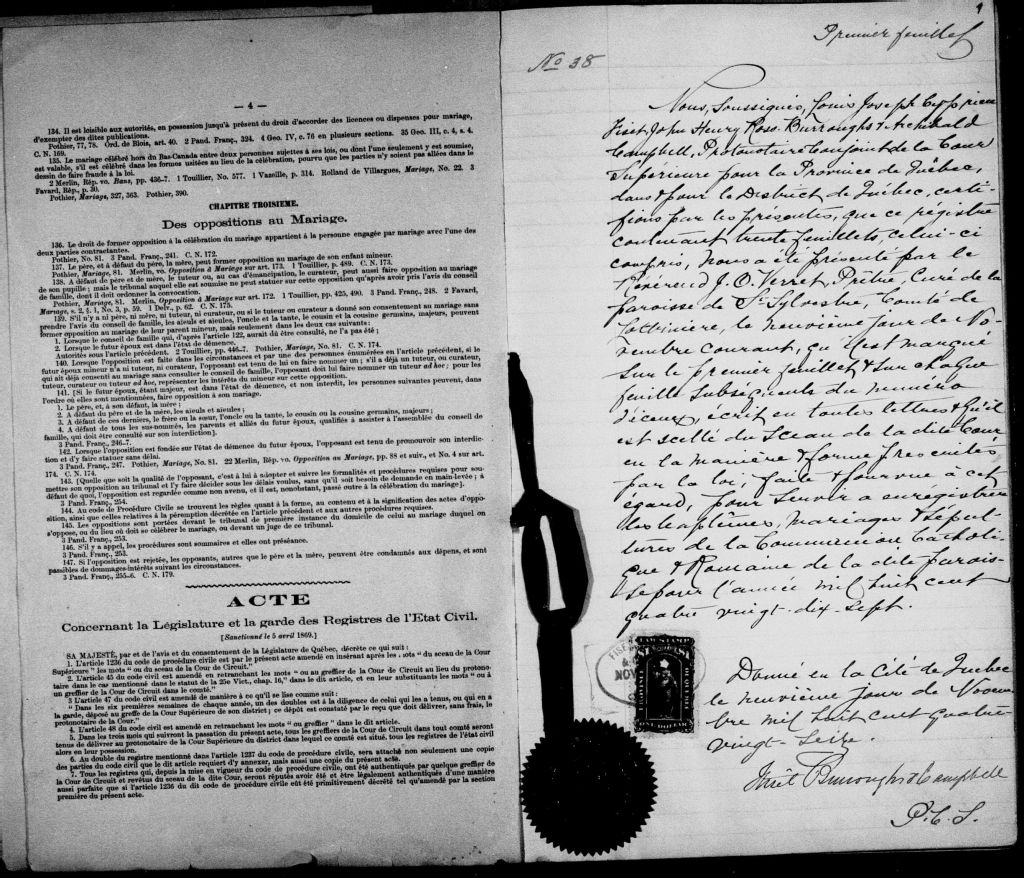 — 4 —
134. Il est loisible aux autorités, en possession jusqu'à présent du droit d'accorder des licences ou dispenses pour mariage,
d'exempter des dites publications.
Pothier, 77, 78. Ord. de Blois, art. 40. 2 Pand. Franç., 324. 4 Geo. IV, c. 76 en plusieurs sections. 35 Geo. III, c. 4, s. 4.
C. N. 169.
135. Le mariage célébré hors du Bas-Canada entre deux personnes sujettes à ses lois, ou dont l'une seulement y est soumise,
est valable, s'il est célébré dans les formes usitées au lieu de la célébration, pourvu que les parties n'y soient pas allées dans le
dessin de faire fraude à la loi.
2 Merlin, Rép. vo. Bans, pp. 436-7. 1 Touillier, No. 577. 1 Vazeille, p. 314. Rolland de Villargues, Mariage, No. 22. 3
Favard, Rép., p. 30.
Pothier, Mariage, 327, 363. Pothier, 390.
CHAPITRE TROISIEME.
Des oppositions au Mariage.
136. Le droit de former opposition à la célébration du mariage appartient à la personne engagée par mariage avec l'une des
deux parties contractantes.
Pothier, No. 81. 3 Pand. Franç., 241. C. N. 172.
137. Le père, et à défaut du père, la mère, peut former opposition au mariage de son enfant mineur.
Pothier, Mariage, 81. Merlin, vo. Opposition à Mariage sur art. 173. 1 Touillier, p. 489. C. N. 173.
138. A défaut de père et de mère, le tuteur ou, au cas d'émancipation, le curateur, peut aussi faire opposition au mariage
de son pupille; mais le tribunal auquel elle est soumise ne peut statuer sur cette opposition qu'après avoir pris l'avis du conseil
de famille, dont il doit ordonner la convocation.
Pothier, Mariage, 81. Merlin, Opposition à Mariage sur art. 172. 1 Touillier, pp. 425, 490. 3 Pand. Franç., 248. 2 Favard,
Mariage, s. 2, §. 1, No. 3, p. 59. 1 Delv., p. 62. C. N. 175.
139. S'il n'y a ni père, ni mère, ni tuteur, ni curateur, ou si le tuteur ou curateur a donné son consentement au mariage sans
prendre l'avis du conseil de famille, les aïeuls et aïeules, l'oncle et la tante, le cousin et la cousine germains, majeurs, peuvent
former opposition au mariage de leur parent mineur, mais seulement dans les deux cas suivants:
1. Lorsque le conseil de famille qui, d'après l'article 122, aurait dû être consulté, ne l'a pas été;
2. Lorsque le futur époux est dans l'état de démence.
Autorités sous l'article précédent. 2 Touillier, pp. 446-7. Pothier, Mariage, No. 81. C. N. 174.
140. Lorsque l'opposition est faite dans les circonstances et par une des personnes énumérées en l'article précédent, si le
futur époux mineur n'a ni tuteur, ni curateur, l'opposant est tenu de lui en faire nommer un; s'il a déjà un tuteur, ou curateur,
qui ait déjà consenti au mariage sans consulter le conseil de famille, l'opposant doit lui faire nommer un tuteur ad hoc; pour les
tuteur, curateur ou tuteur ad hoc, représenter les intérêts du mineur sur cette opposition.
141. [Si le futur époux, étant majeur, est dans l'état de démence, et non interdit, les personnes suivantes peuvent, dans
l'ordre où elles sont mentionnées, faire opposition à son mariage.
1. Le père, et, à son défaut, la mère;
2. A défaut du père et de la mère, les aïeuls et aïeules;
3. A défaut de ces derniers, le frère ou la sœur, l'oncle ou la tante, le cousin ou la cousine germains, majeurs;
4. A défaut de tous les sus-nommés, les parents et alliés du futur époux, qualifiés à assister à l'assemblée du conseil de
famille, qui doit être consulté sur son interdiction].
3 Pand. Franç., 246-7.
142. Lorsque l'opposition est fondée sur l'état de démence du futur époux, l'opposant est tenu de promouvoir son interdic-
tion et d'y faire statuer sans délai.
3 Pand. Franç., 247. Pothier, Mariage, No. 81. 22 Merlin, Rép. vo. Opposition au Mariage, pp. 88 et suiv., et No. 4 sur art.
174. C. N. 174.
143. [Quelle que soit la qualité de l'opposant, c'est à lui à adopter et suivre les formalités et procédures requises pour sou-
mettre son opposition au tribunal et l'y faire décider sous les délais voulus, sans qu'il soit besoin de demande en main-levée; à
défaut de quoi, l'opposition est regardée comme non avenue, et il est, nonobstant, passé outre à la célébration du mariage].
3 Pand. Franç., 254.
144. Au code de Procédure Civile se trouvent les règles quant à la forme, au contenu et à la signification des actes d'oppo-
sition, ainsi que celles relatives à la péremption décrétée en l'article précédent et aux autres procédures requises.
145. Les oppositions sont portées devant le tribunal de première instance du domicile de celui au mariage duquel on
s'oppose, ou du lieu où doit se célébrer le mariage, ou devant un juge de ce tribunal.
3 Pand. Franç., 253.
146. S'il y a appel, les procédures sont sommaires et elles ont préséance.
3 Pand. Franç., 253.
147. Si l'opposition est rejetée, les opposants, autres que le père et la mère, peuvent être condamnés aux dépens, et sont
passibles de dommages-intérêts suivant les circonstances.
3 Pand. Franç., 255-6. C. N. 179.
ACTE
Concernant la Législature et la garde des Registres de l'Etat Civil.
[Sanctionné le 5 avril 1869.]
SA MAJESTÉ, par et de l'avis et du consentement de la Législature de Québec, décrète ce qui suit:
1. L'article 1236 du code de procédure civile est par le présent acte amendé en insérant après les mots "du sceau de la Cour
Supérieure" les mots "ou du sceau de la Cour de Circuit."
2. L'article 45 du code civil est amendé en retranchant les mots "ou au greffier de la Cour de Circuit au lieu du protono-
taire dans le cas mentionné dans le statut de la 25e Vict., chap. 16," dans le dit article, et en leur substituants les mots "ou à
un greffier de la Cour de Circuit dans le comté."
3 L'article 47 du code civil est amendé de manière à ce qu'il se lise comme suit:
"Dans les six premières semaines de chaque année, un des doubles est à la diligence de celui qui les a tenus, ou qui en a
la garde, déposé au greffe de la Cour Supérieure de son district; ce dépôt est constaté par le reçu que doit délivrer, sans frais, le
protonotaire de la Cour."
4. L'article 48 du code civil est amendé en retranchant les mots "ou greffier" dans le dit article.
5. Dans les trois mois qui suivront la passation du présent acte, tous les greffiers de la Cour de Circuit dans tout comté seront
tenus de délivrer au protonotaire de la Cour Supérieure du district dans lequel ce comté est situé, tous les registres de l'état civil
alors en leur possession.
6. Au double du registre mentionné dans l'article 1237 du code de procédure civile, sera attaché non seulement une copie
des parties du code civil que le dit article requiert d'y annexer, mais aussi une copie du présent acte.
7. Tous les registres qui, depuis la mise en vigueur du code de procédure civile, ont été authentiqués par quelque greffier de
la Cour de Circuit et revêtus du sceau de la dite Cour, seront réputés avoir été et être légalement authentiqués d'une manière
aussi parfaite que si l'article 1236 du dit code de procédure civile eût été primitivement décrété tel qu'amendé par la section
première du présent acte.
1
Premier feuillet
No 38
Nous, Soussignés, Louis Joseph Cyprien
Fiset, John Henry Ross Burroughs & Archibald
Campbell, Protonotaire Conjoint de la Cour
Supérieure pour la Province de Québec,
dans & pour le District de Québec, certi-
fions par les présentes, que ce régistre
contenant trente feuillets, celui-ci
compris, nous a été présenté par le
Révérend J. O. Verret, Prêtre, Curé de la
paroisse de St Sylvestre, Comté de
Lotbinière, le neuvième jour de No-
vembre courant, qu'il est marqué
sur le premier feuillet & sur chaque
feuille subséquents du numéro
d'iceux, écrit en toutes lettres & qu'il
est scellé du Sceau de la dite Cour
en la manière & forme prescrites
par la loi, faite & pourvue à cet
égard, pour servir a enregistrer
les baptêmes, mariages & sépul-
tures de la Communion Catholi-
que & Romaine de la dite parois-
se pour l'année mil huit cent
quatre vingt-dix-sept.
Donné en la Cité de Québec
le neuvième jour de Novem-
bre mil huit cent quatre
vingt-seize.
Fiset Burroughs & Campbell
P. C. S.
LAW STAMP
ONE DOLLAR
NOV